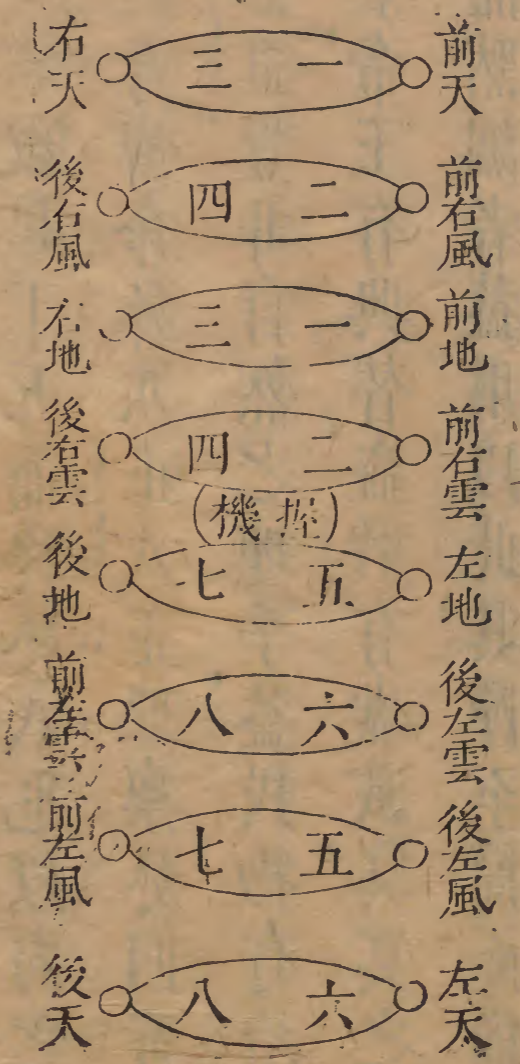 前天 一 三 右天
前右風 二 四 後右風
前地 一 三 右地
前右雲 二 四 後右雲
(握機)
左地 五 七 後地
後左雲 六 八 前左雲
後左風 五 七 前左風
左天 六 八 後天